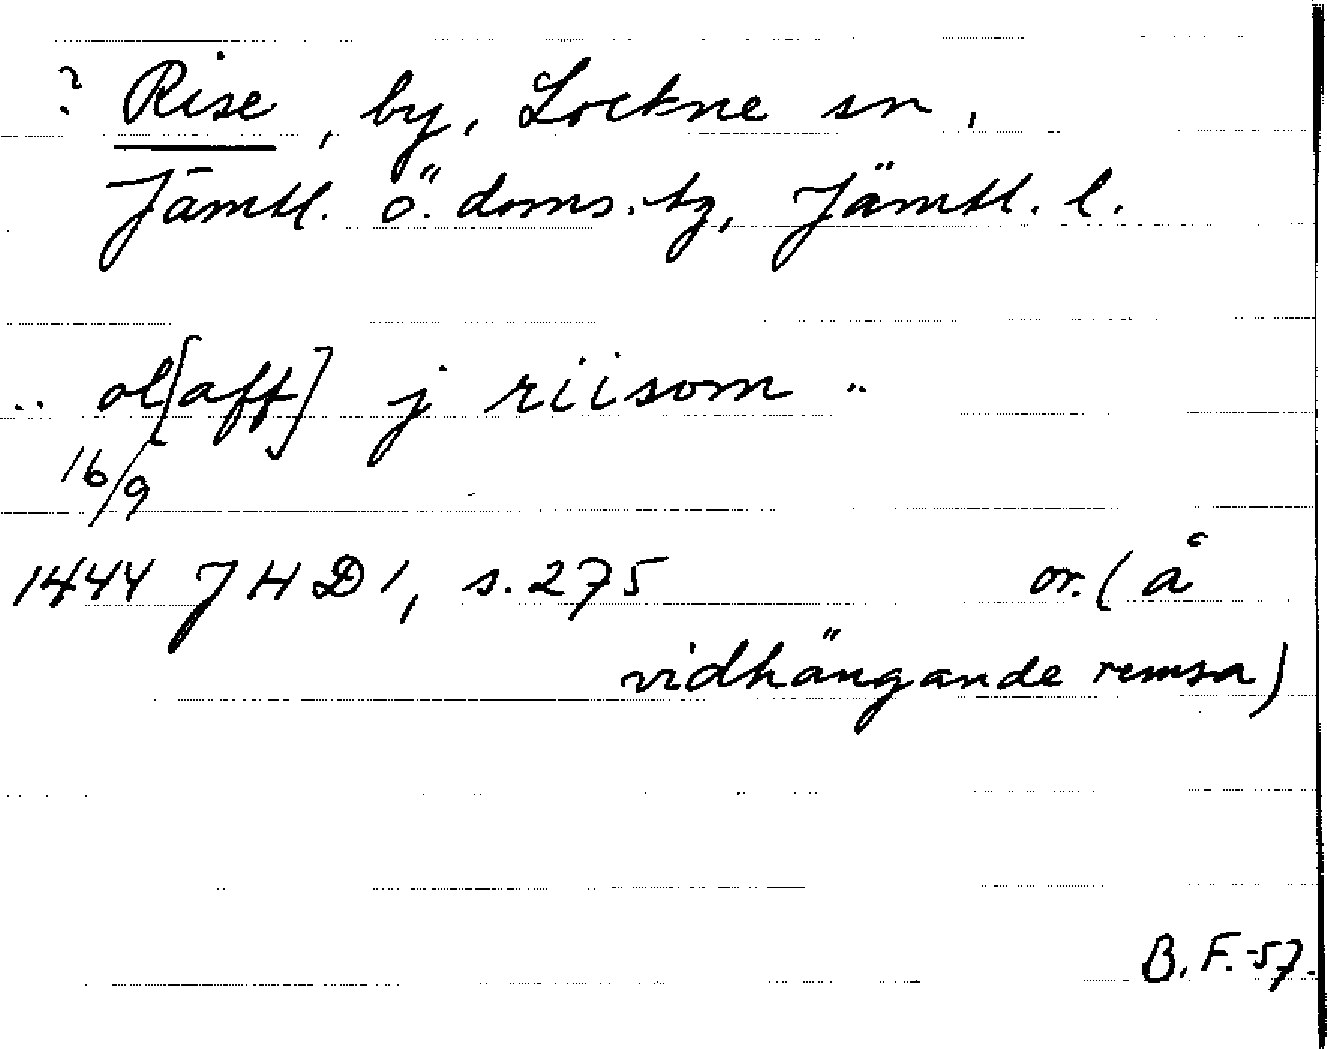 ? Rise, by, Lockne sn,
Jämtl. ö. doms. tg, Jämtl. l.
.. ol[aff] j riisom ..
16/9
1444 JHD 1, s. 275 or. (å
vidhängande remsa)
B.F.-57.